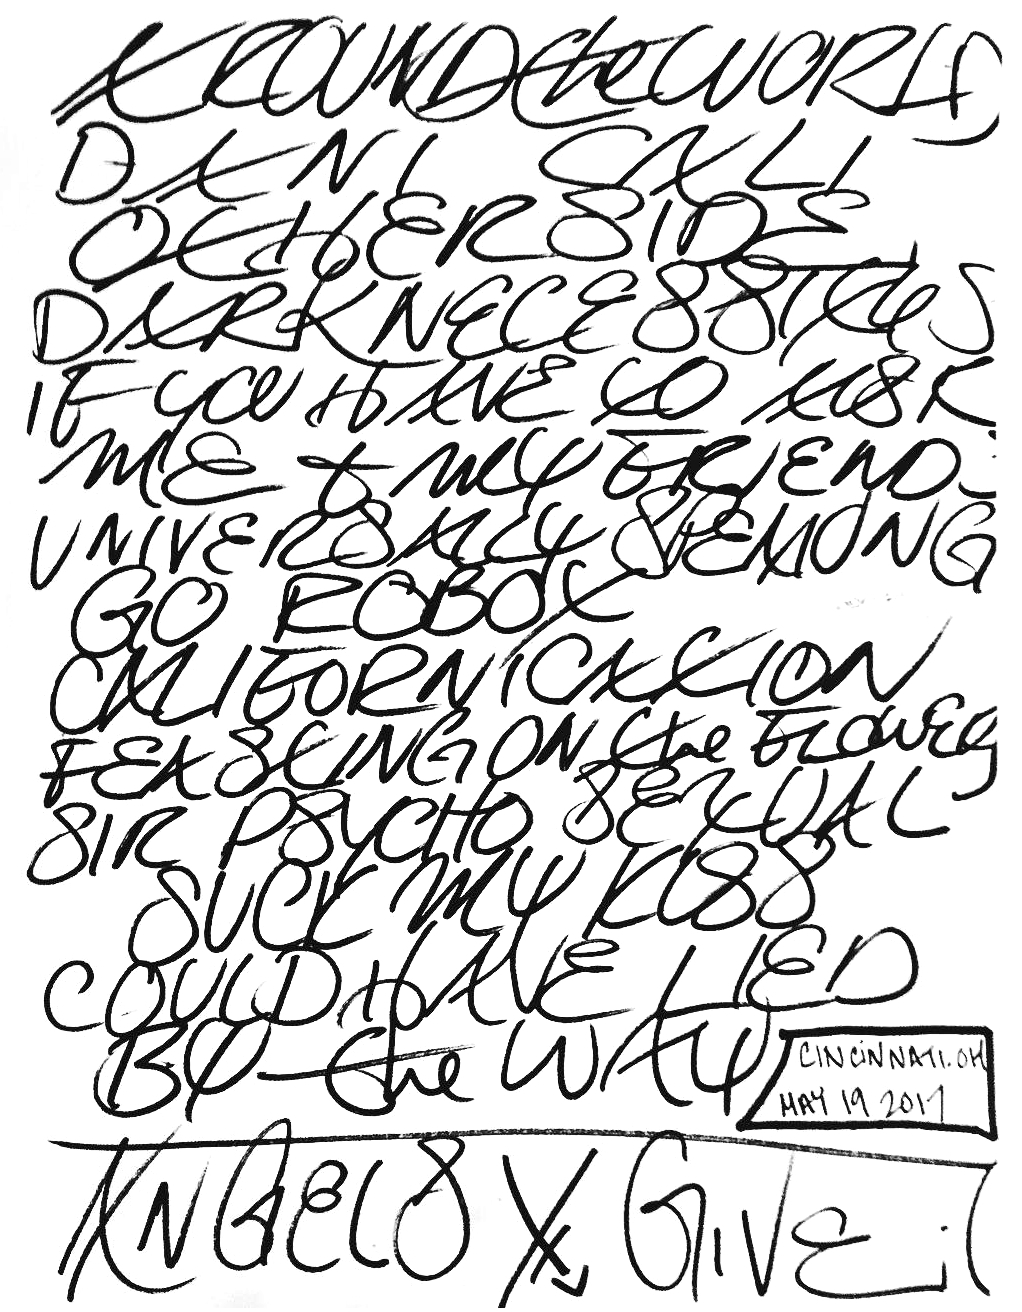 AROUND the WORLD
DANI CALI
OTHERSIDE
DARK NECESSITIES
IF YOU HAVE to ASK
ME & MY FRIENDS
UNIVERSALLY SPEAKING
GO ROBOT
CALIFORNICATION
FEASTING ON the FLOWERS
SIR PSYCHO SEXUAL
SUCK MY KISS
COULD HAVE LIED
BY the WAY
CINCINNATI.OH
MAY 19 2017
ANGELS
GIVE